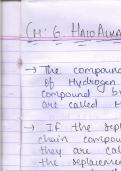 CH: 6 HALO ALKA
→ The compound
of Hydrogen
compound b
are called H
→ If the repl
chain compou
they are call
the replacemen